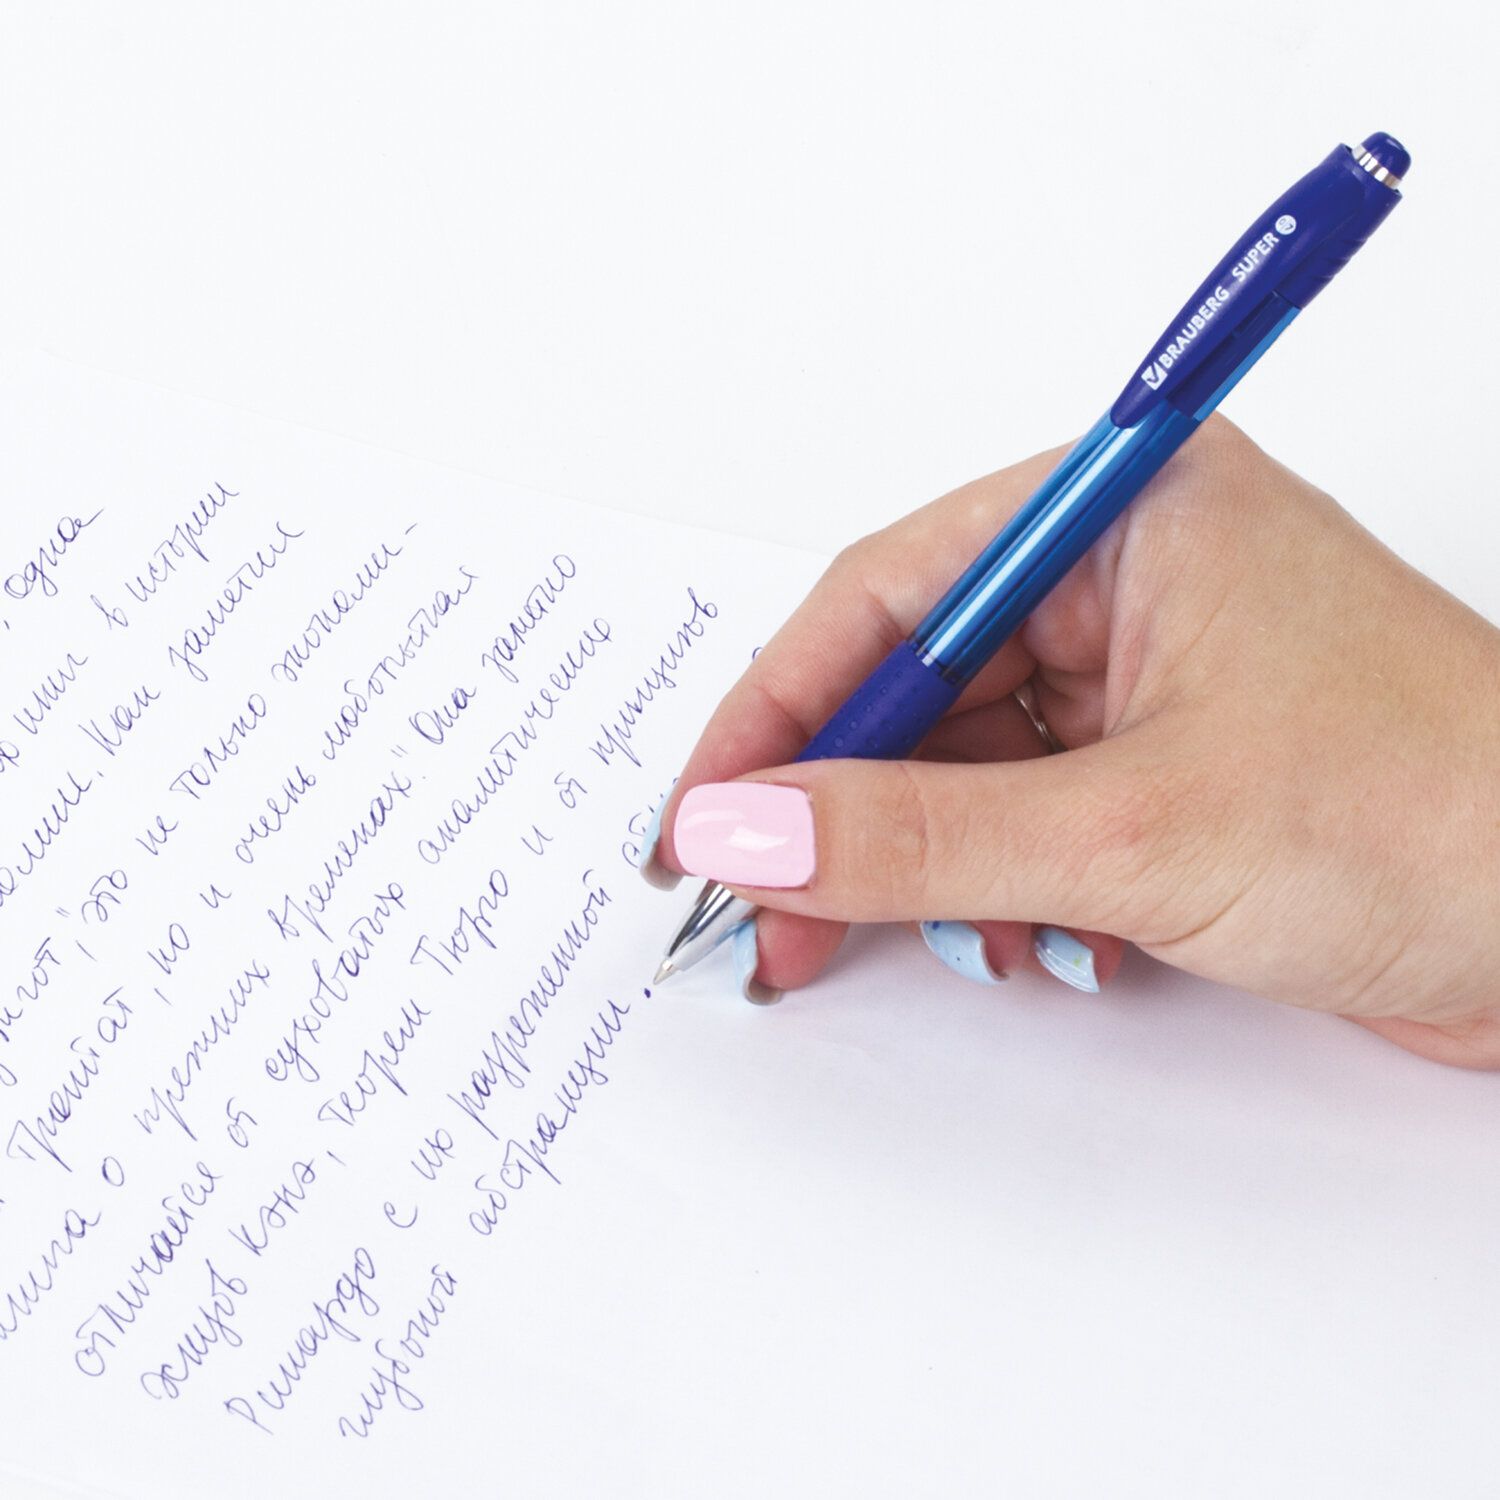 одна
книг в истории
Как заметил
это не только экономи-
Трактат, но и очень любопытная
о прежних временах". Она заметно
отличается от суховатых аналитических
эскизов Кэнэ, Теорем Тюрго и от принципов
Рикардо с их разреженной
глубокой абстракции.
BRAUBERG SUPER 07